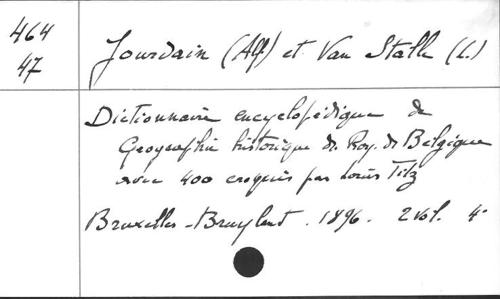 464
47
Jourdain (Alf) et Van Stalle (L.)
Dictionnaire encyclopédique de
Géographie historique du Roy. de Belgique
avec 400 croquis par Louis Titz
Bruxelles - Bruylant. 1896. 2 vol. 4°